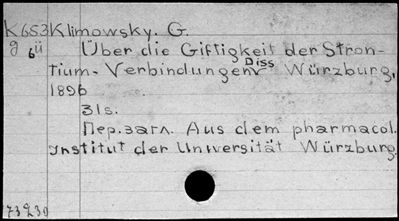 K653 Klimowsky. G.
g 6ü Über die Giftigkeit der Stron-
tium-Verbindungen Diss Würzburg,
1896
31s.
Пер.загл. Aus dem pharmacol.
Institut der Universität Würzburg.
73230